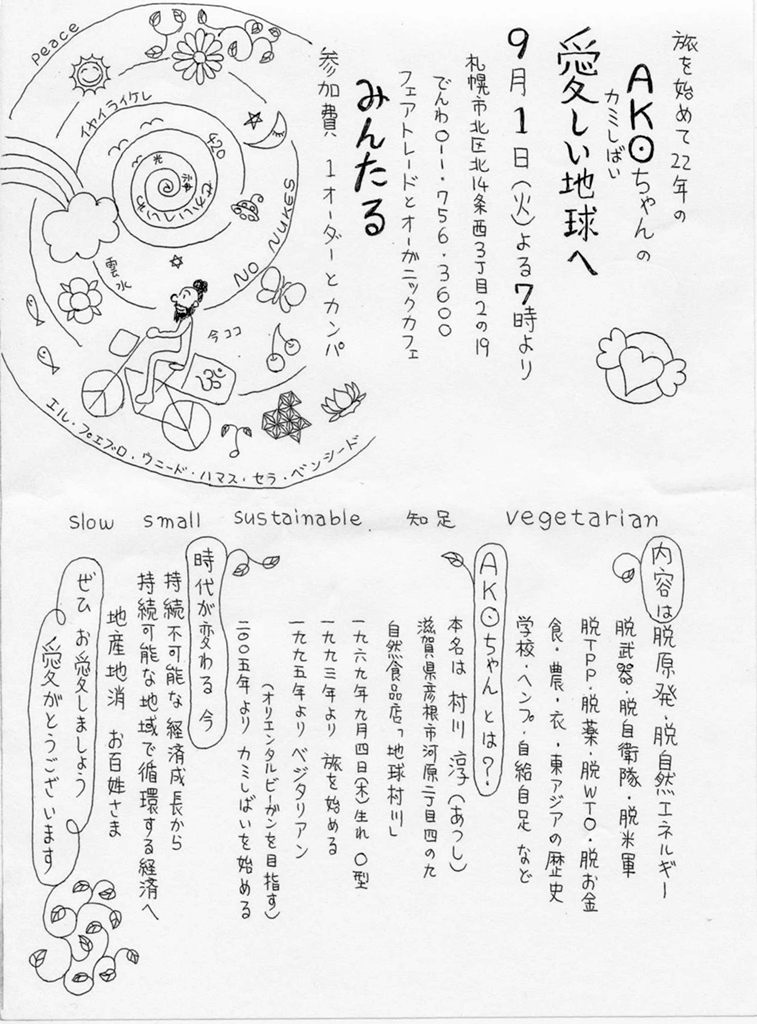 旅を始めて22年の
AKOちゃんの
カミしばい
愛しい地球へ
9月1日(火)よる7時より
札幌市北区北14条西3丁目2の19
でんわ011・756・3600
フェアトレードとオーガニックカフェ
みんたる
参加費 1オーダーとカンパ
peace
イヤイライケレ
420
光
神
せかいいしいわ
NO NUKES
雲水
今ココ
ॐ
エル・プエブロ・ウニード・ハマス・セラ・ベンシード
slow small sustainable 知足 vegetarian
内容は脱原発・脱自然エネルギー
脱武器・脱自衛隊・脱米軍
脱TPP・脱薬・脱WTO・脱お金
食・農・衣・東アジアの歴史
学校・ヘンプ・自給自足 など
AKOちゃんとは?
本名は 村川 淳(あつし)
滋賀県彦根市河原二丁目四の九
自然食品店「地球村川」
一九六九年九月四日(木)生れ O型
一九九三年より 旅を始める
一九九五年より ベジタリアン
(オリエンタルビーガンを目指す)
二〇〇五年より カミしばいを始める
時代が変わる 今
持続不可能な 経済成長から
持続可能な地域で循環する経済へ
地産地消 お百姓さま
ぜひ お愛しましょう
愛がとうございます